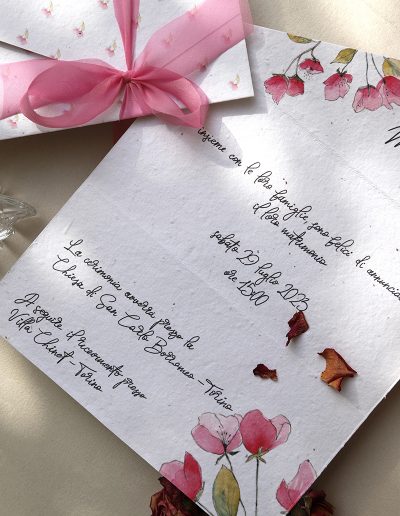 insieme con le loro famiglie, sono felici di annunciare
il loro matrimonio
sabato 29 luglio 2023
ore 15:00
La cerimonia avverrà presso la
Chiesa di San Carlo Borromeo - Torino
A seguire il ricevimento presso
Villa Chinot - Torino